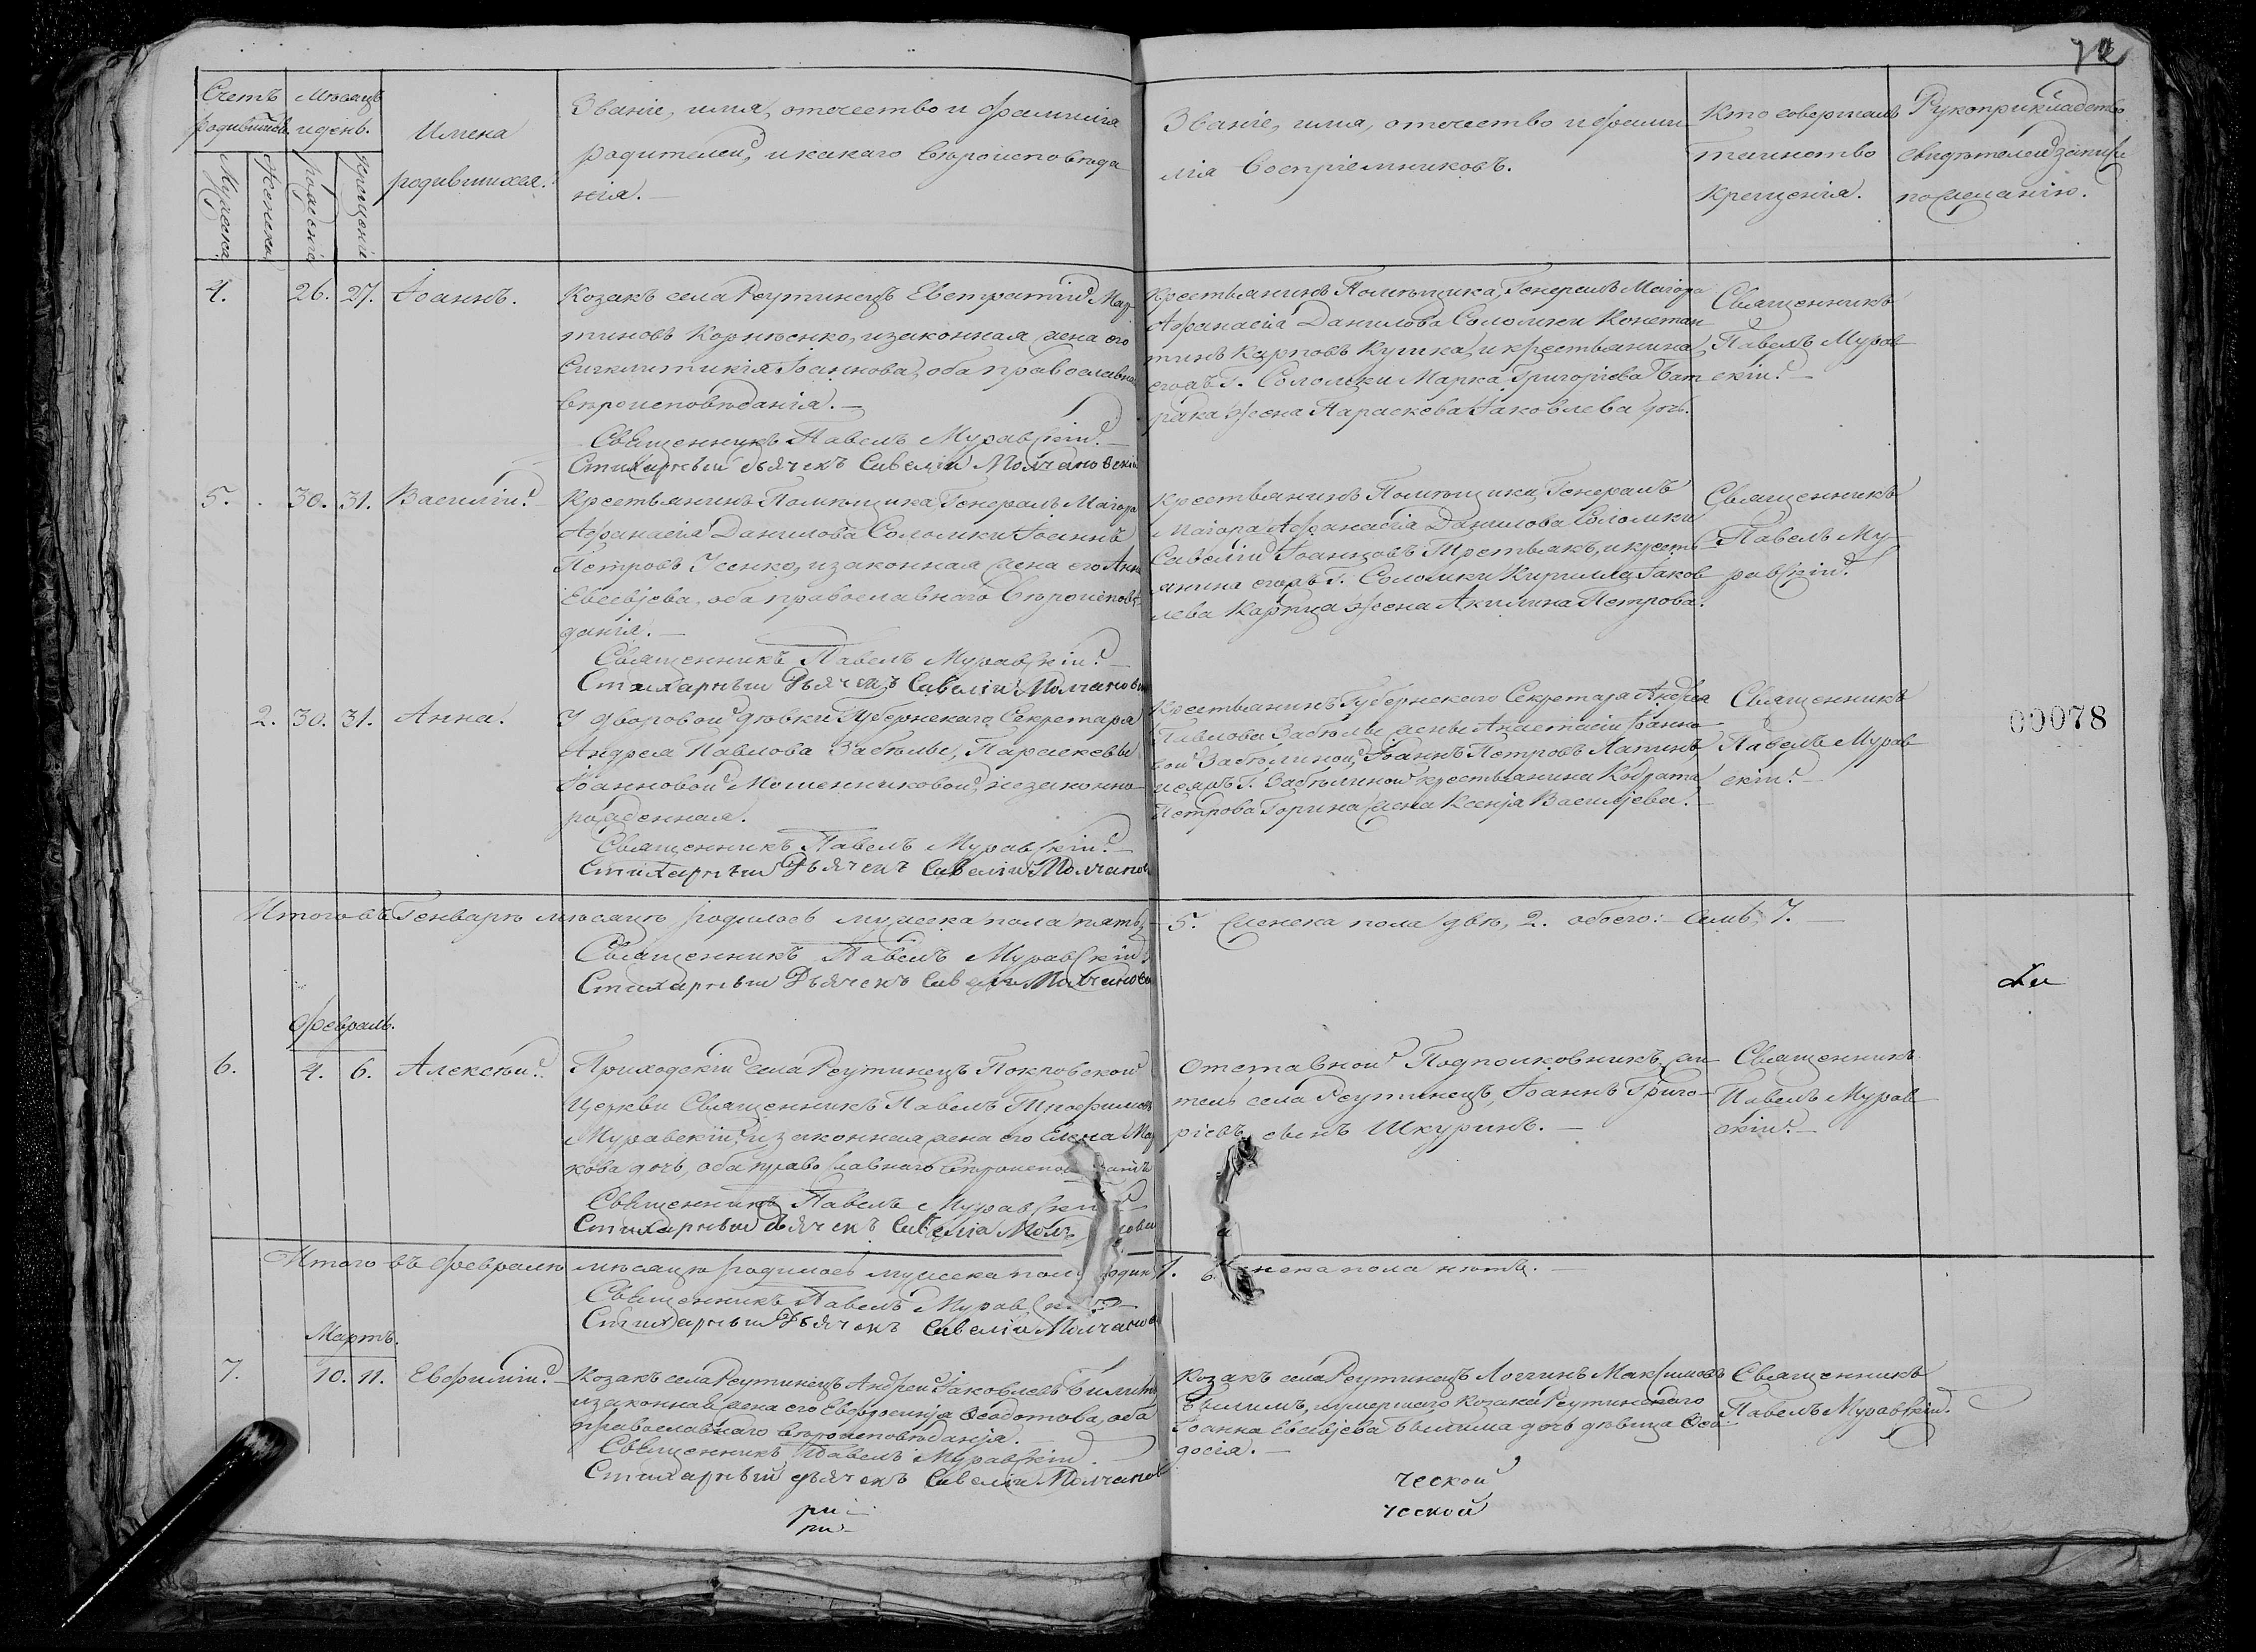 72
Счетъ родившихся.
Мѣсяцъ и день.
Мужеска
Женска
рожденія
крещенія
Имена
родившихся.
Званіе, имя, отечество и фамилія
родителей, и какаго вѣроисповѣда
нія.
Званіе, имя, отечество и фами
лія воспріемниковъ.
Кто совершалъ
таинство
крещенія.
Рукоприкладство
свидѣтелей записи
по желанію.
4. 26. 27. Іоаннъ.
Козакъ села Реутинецъ Евстратій Мар
тиновъ Корнѣенко, и законная жена его
Сигклитикія Іоаннова, оба православнаго
вѣроисповѣданія.
Священникъ Павелъ Муравскій.
Стихарный дьячекъ Савелій Молчановскій
Крестьянинъ Помѣщика, Генералъ Маіора
Афанасія Данилова Соломки Констан
тинъ Карповъ Кушка, и крестьянина
егожъ Г. Соломки Марка Григоріева Бат
рака жена Параскева Іаковлева дочь.
Священникъ
Павелъ Мурав
скій.
5. 30. 31. Василій.
Крестьянинъ Помѣщика, Генералъ Маіора
Афанасія Данилова Соломки Іоаннъ
Петровъ Усенко, и законная жена его Анна
Евсевіева, оба православнаго вѣроисповѣ
данія.
Священникъ Павелъ Муравскій.
Стихарный Дьячекъ Савелій Молчанов
Крестьянинъ Помѣщика, Генералъ
Маіора Афанасія Данилова Соломки
Савелій Іоанновъ Третьякъ, и кресть
янина егожъ Г. Соломки Кирилла Іаков
лева жена Акилина Петрова.
Священникъ
Павелъ Му
равскій.
2. 30. 31. Анна.
У дворовой дѣвки Губернскаго Секретаря
Андрея Павлова Забѣлы, Параскевы
Іоанновой Мошенниковой, незаконно
рожденная.
Священникъ Павелъ Муравскій.
Стихарный Дьячекъ Савелій Молчанов
Крестьянинъ Губернского Секретаря Андрея
Павлова Забѣлы жены Анастасіи Іоанно
вой Забѣлиной, Іоаннъ Петровъ Лапинъ,
и еяжъ Г. Забѣлиной крестьянина Кодрата
Петрова Горина жена Ксенія Василіева.
Священникъ
Павелъ Мурав
скій.
00078
Итого въ Генварѣ мѣсяцѣ родилось мужеска пола пять, 5. женска пола двѣ, 2. обоего: семь, 7.
Священникъ Павелъ Муравскій
Стихарный Дьячекъ Савелій Молчановс
Февраль.
6. 4. 6. Алексѣй.
Приходскій села Реутинецъ Покровской
Церкви Священникъ Павелъ Трофимов
Муравскій, и законная жена его Елена Мар
кова дочь, оба православнаго
Священникъ Павелъ Муравскій
Стихарный дьячекъ Савелій
Отставной Подполковникъ, жи
тель села Реутинецъ, Іоаннъ Григо
ріевъ сынъ Шкуринъ.
Священникъ
Павелъ Мурав
скій.
Итого въ Февралѣ мѣсяцѣ родилось мужеска пола одинъ 1. женска пола нѣтъ.
Священникъ Павелъ Муравскій
Стихарный Дьячекъ Савелій Молчанов
Мартъ.
7. 10. 11. Евфимій.
Козакъ села Реутинецъ Андрей Іаковлевъ Билимъ
и законная жена его Евфросинія Ѳеодотова, оба
православнаго вѣроисповѣданія.
Священникъ Павелъ Муравскій.
Стихарный дьячекъ Савелій Молчанов
Козакъ села Реутинецъ Логгинъ Максимовъ
Былимъ, и умершаго козака Реутинскаго
Іоанна Евсевіева Былима дочь дѣвица Ѳео
досія.
Священникъ
Павелъ Муравскій.
ри
ри
ческой
ческой